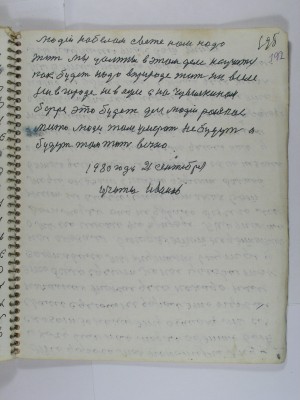 людей на белом свете нам надо
жит мы усатты в этом деле научит
как будет надо в природе жит ни в селе
ни в городе не в ауле а на чувашском
бугре это будет для людей райское
жито люди там умират не будут а
будут там жит вечно
1980 года 21 сентября
учител Иванов
192